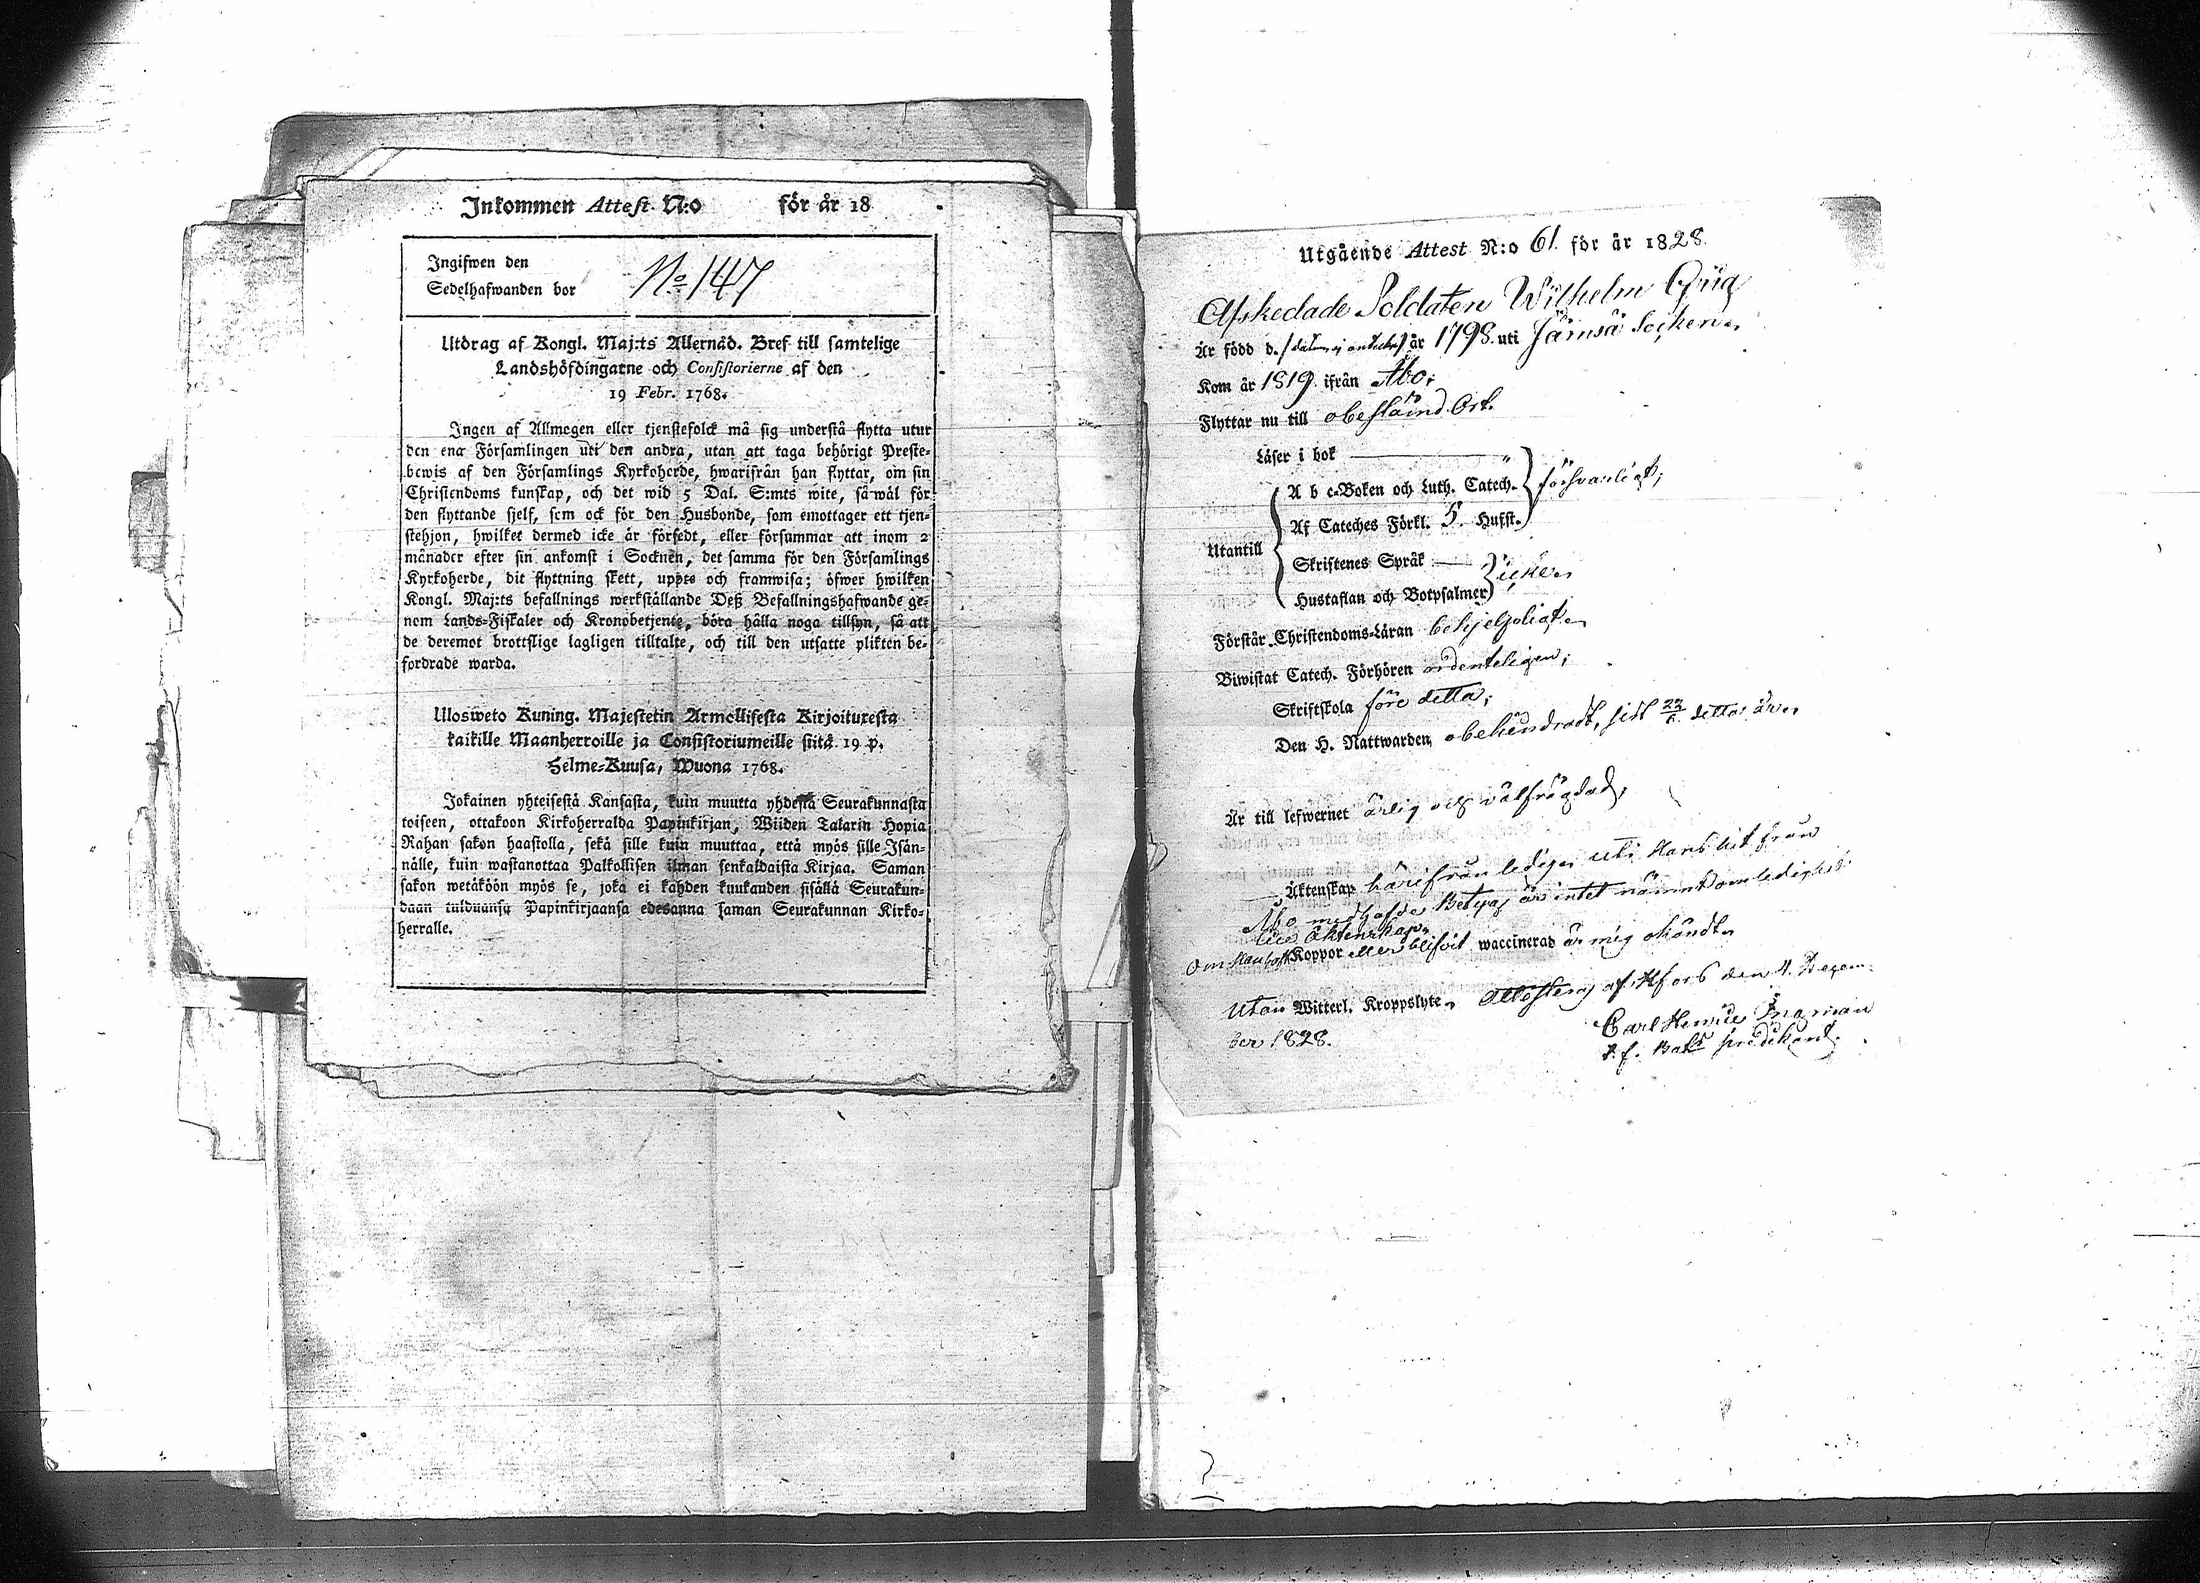 Inkommen Attest N:o för år 18
Ingifwen den
Sedelhafwanden bor
No 147
Utdrag af Kongl. Maj:ts Allernåd. Bref till samtelige
Landshöfdingarne och Consistorierne af den
19 Febr. 1768.
Ingen af Allmogen eller tjenstefolck må sig understå flytta utur
den ena Församlingen uti den andra, utan att taga behörigt Preste-
bewis af den Församlings Kyrkoherde, hwarifrån han flyttar, om sin
Christendoms kunskap, och det wid 5 Dal. S:mts wite, såwäl för
den flyttande sjelf, som ock för den Husbonde, som emottager ett tjen-
stehjon, hwilket dermed icke är försedt, eller försummar att inom 2
månader efter sin ankomst i Socknen, det samma för den Församlings
Kyrkoherde, dit flyttning skett, uppte och framwisa; öfwer hwilken
Kongl. Maj:ts befallnings werkställande Deß Befallningshafwande ge-
nom Lands-Fiskaler och Kronobetjente, böra hålla noga tillsyn, så att
de deremot brottslige lagligen tilltalte, och till den utsatte plikten be-
fordrade warda.
Ulosweto Kuning. Majestetin Armollisesta Kirjoituxesta
kaikille Maanherroille ja Consistoriumeille siitä 19 p.
Helme-Kuusa, Wuona 1768.
Jokainen yhteisestä Kansasta, kuin muutta yhdestä Seurakunnasta
toiseen, ottakoon Kirkoherralda Papinkirjan, Wiiden Talarin Hopia
Rahan sakon haastolla, sekä sille kuin muuttaa, että myös sille Isän-
nälle, kuin wastanottaa Palkollisen ilman senkaldaista Kirjaa. Saman
sakon wetäköön myös se, joka ei kahden kuukauden sisällä Seurakun-
daan tulduansa Papinkirjaansa edesanna saman Seurakunnan Kirko-
herralle.
Utgående Attest N:o 61. för år 1828.
Afskedade Soldaten Wilhelm Grüg
Är född d. år 1798. uti Jämsä Socken.
Kom år 1819. ifrån Åbo;
Flyttar nu till obestämd Ort.
Läser i bok
A b c-Boken och Luth. Catech. försvarligt;
Af Cateches Förkl. 5. Hufst.
Utantill
Skriftenes Språk icke.
Hustaflan och Botpsalmer
Förstår Christendoms-Läran behjelpligt.
Biwistat Catech. Förhören ordenteligen;
Skriftskola före detta;
Den H. Nattwarden obehindradt, sist detta år.
Är till lefwernet ärlig och välfrägdad;
Äktenskap härifrån ledig; uti Hans hit från
Åbo medhafde Betyg är intet nämnt om ledighet
till Äktenskap.
Om Han haft Koppor eller blifvit waccinerad är mig okändt.
Utan Witterl. Kroppslyte. Attesteras af Hfors den 4. Decem-
ber 1828.
Carl Henric Ingman
t. f. predikant.